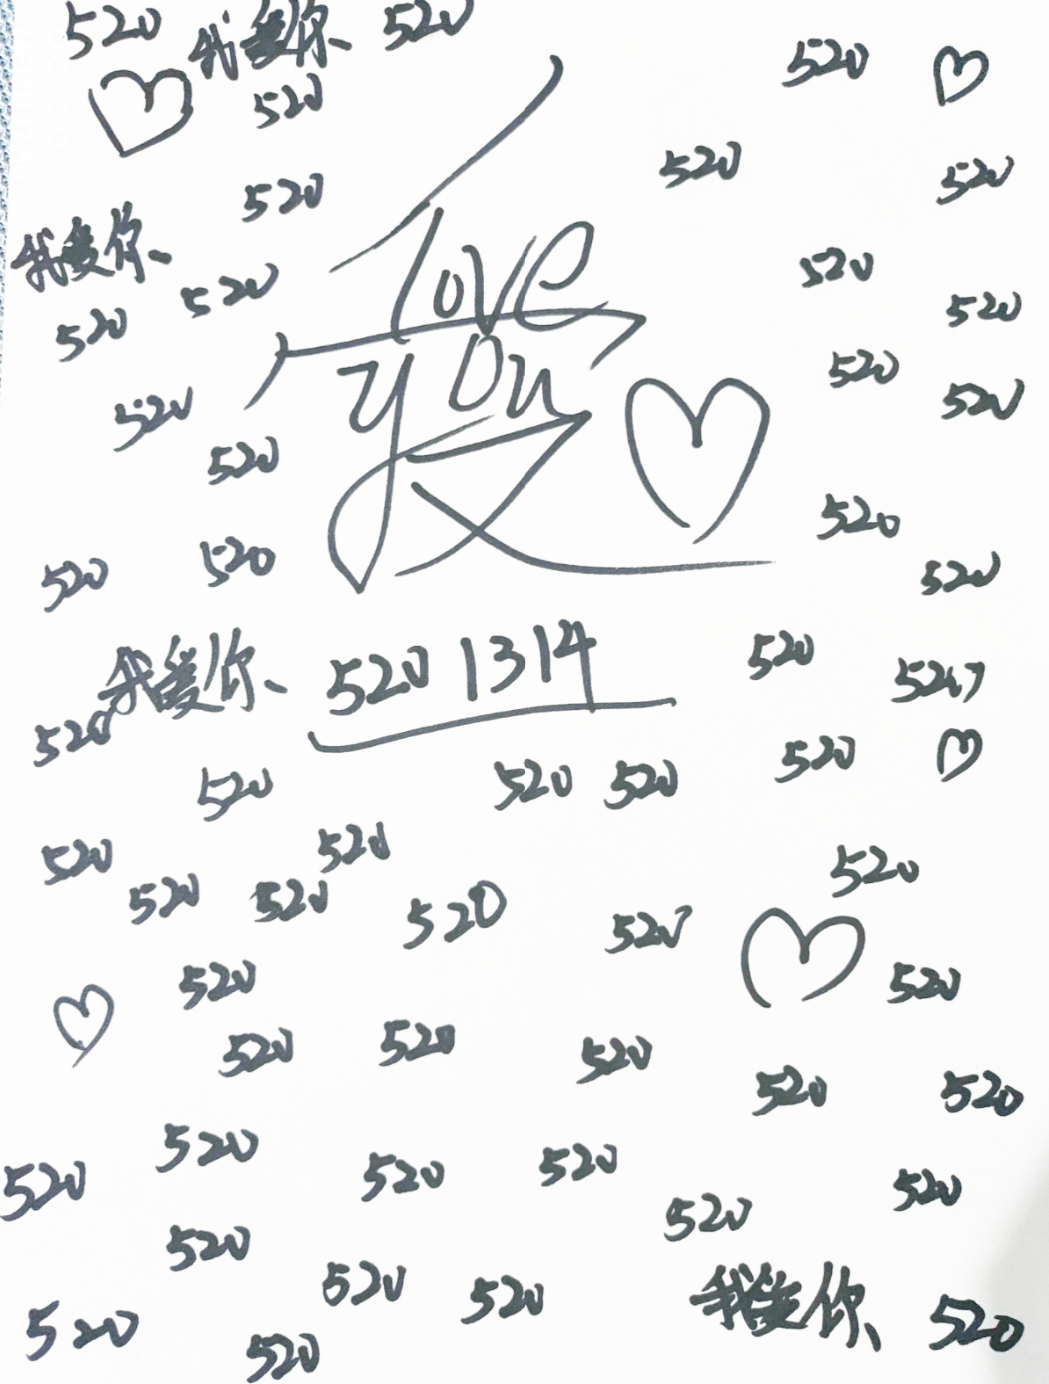 520 我爱你 520
520
520
520
520
520
520
我爱你
love
520
520
520
520
you
520
520
520
520
520
520
520
520
我爱你 520 1314
520
520
520
520
520 520
520
520
520
520
520 520 520
520
520
520
520 520 520
520
520
520
520
520 520
520
520
520
520 520
我爱你 520
520
520